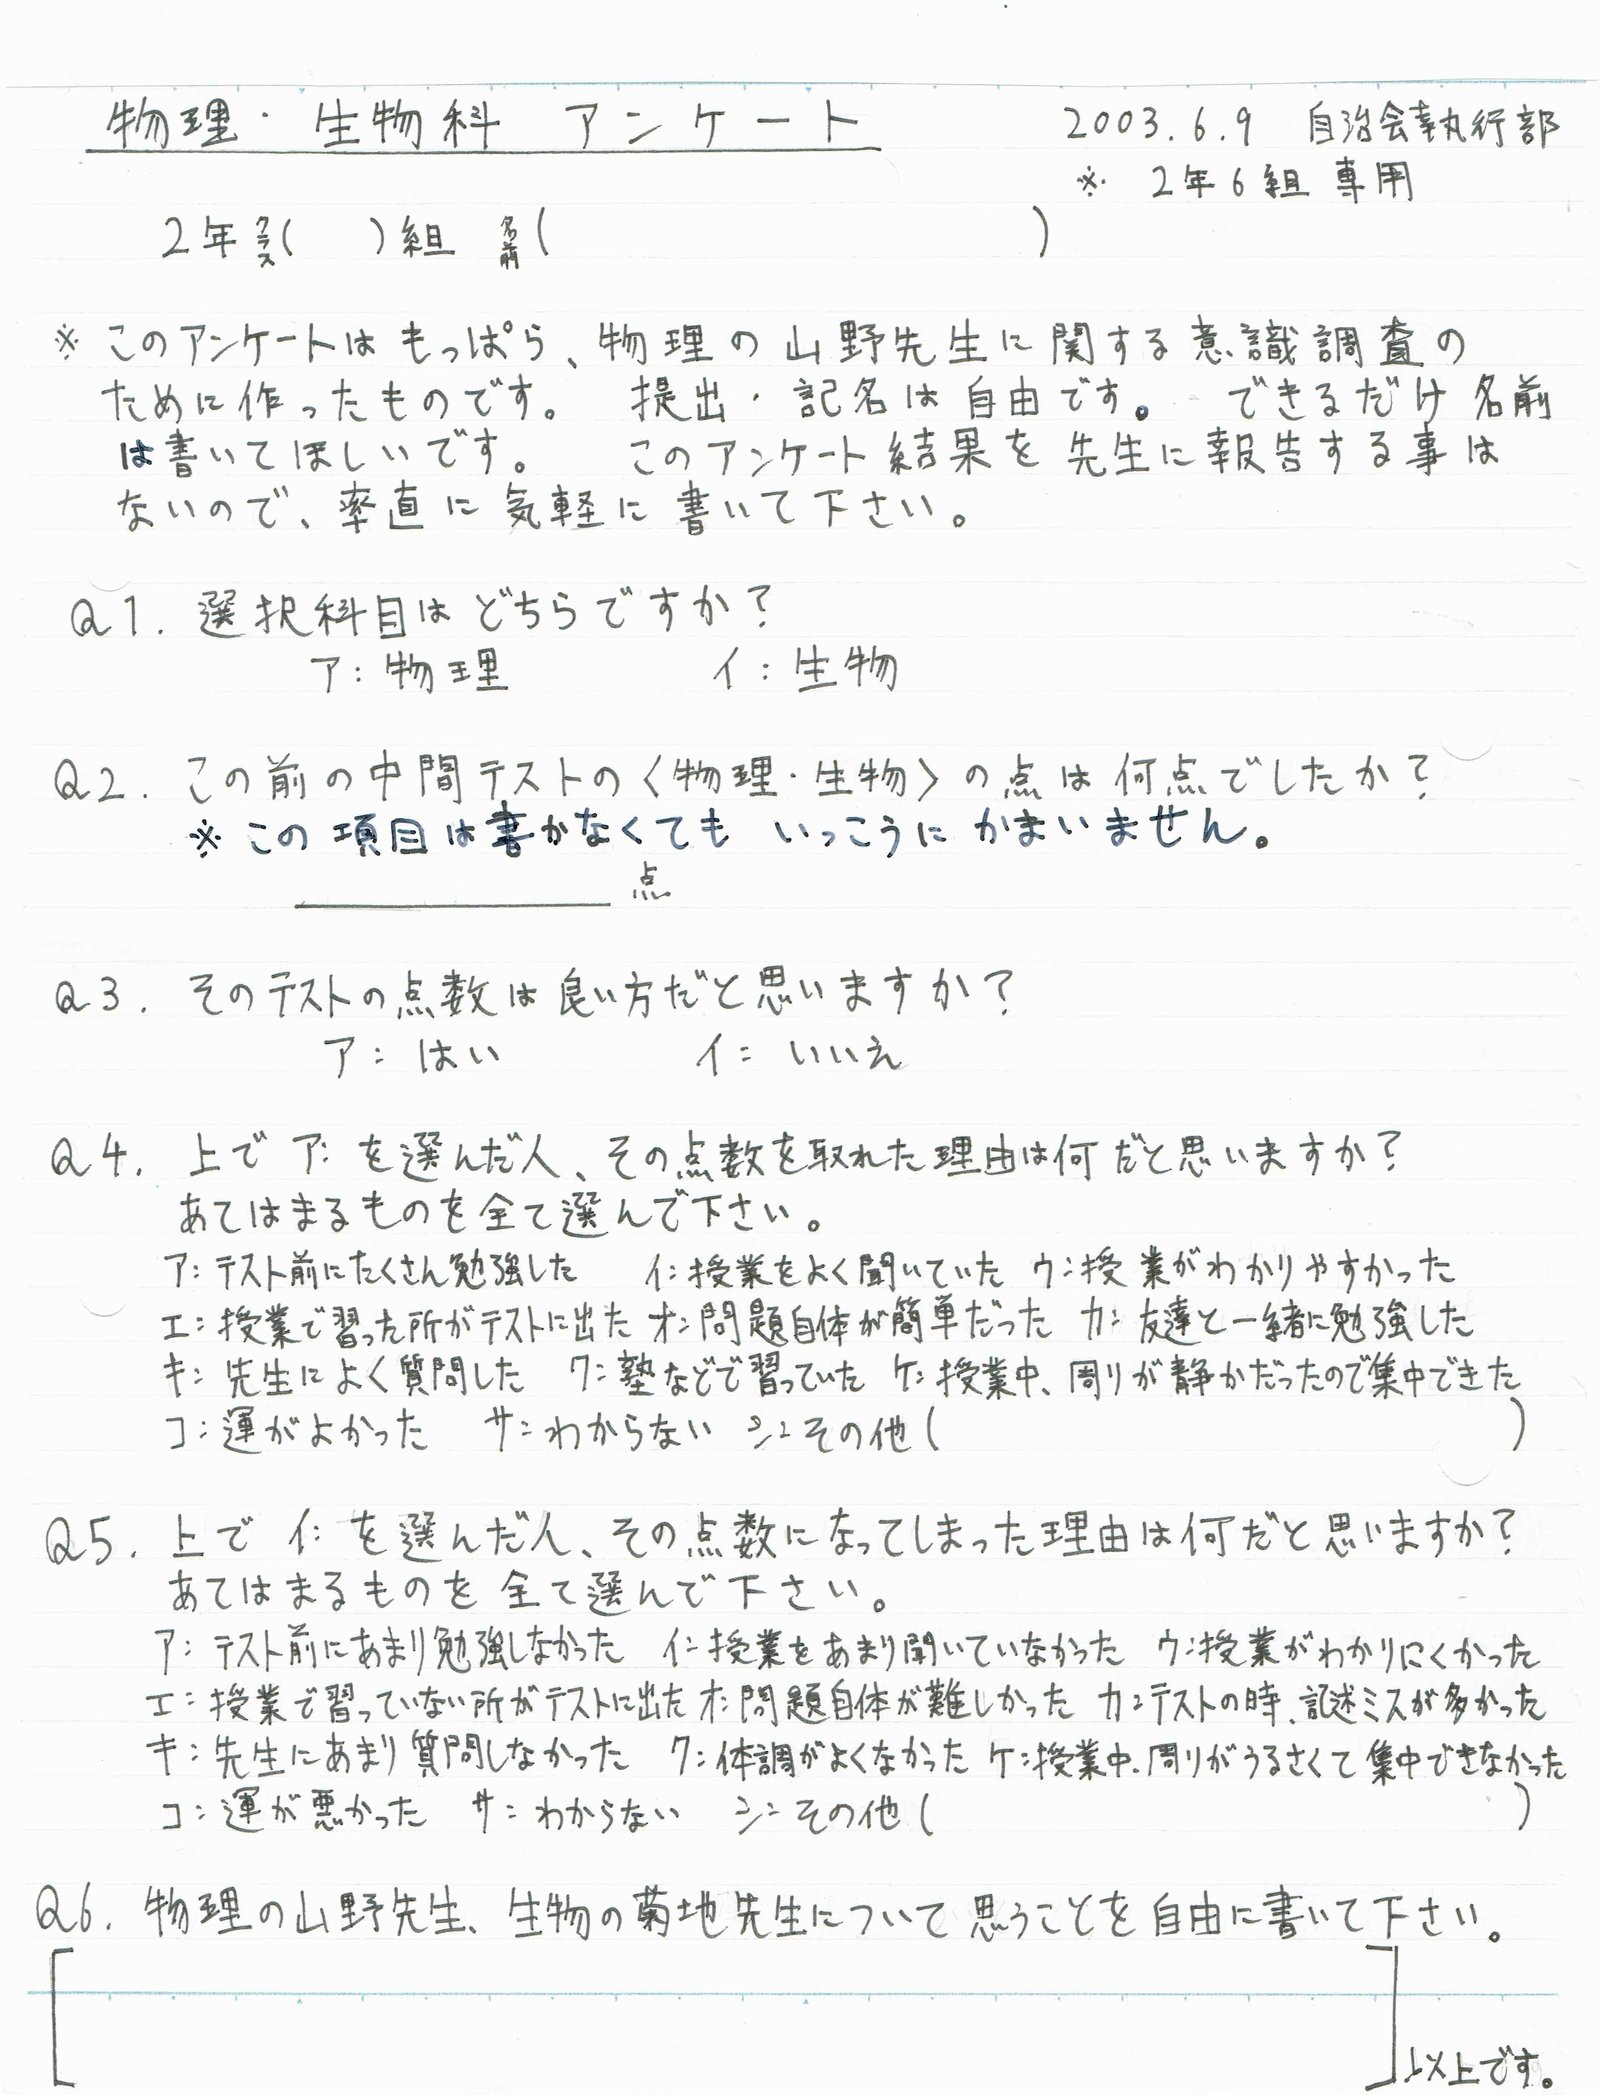 物理・生物科 アンケート
2003.6.9 自治会執行部
※ 2年6組 専用
2年クラス( )組 名前( )
※ このアンケートはもっぱら、物理の山野先生に関する意識調査の
ために作ったものです。 提出・記名は自由です。 できるだけ名前
は書いてほしいです。 このアンケート結果を先生に報告する事は
ないので、率直に気軽に書いて下さい。
Q1. 選択科目はどちらですか?
ア: 物理 イ: 生物
Q2. この前の中間テストの〈物理・生物〉の点は何点でしたか?
※ この項目は書かなくても いっこうに かまいません。
点
Q3. そのテストの点数は良い方だと思いますか?
ア: はい イ: いいえ
Q4. 上で ア: を選んだ人、その点数を取れた理由は何だと思いますか?
あてはまるものを全て選んで下さい。
ア: テスト前にたくさん勉強した イ: 授業をよく聞いていた ウ: 授業がわかりやすかった
エ: 授業で習った所がテストに出た オ: 問題自体が簡単だった カ: 友達と一緒に勉強した
キ: 先生によく質問した ク: 塾などで習っていた ケ: 授業中、周りが静かだったので集中できた
コ: 運がよかった サ: わからない シ: その他( )
Q5. 上で イ: を選んだ人、その点数になってしまった理由は何だと思いますか?
あてはまるものを全て選んで下さい。
ア: テスト前にあまり勉強しなかった イ: 授業をあまり聞いていなかった ウ: 授業がわかりにくかった
エ: 授業で習っていない所がテストに出た オ: 問題自体が難しかった カ: テストの時、記述ミスが多かった
キ: 先生にあまり質問しなかった ク: 体調がよくなかった ケ: 授業中、周りがうるさくて集中できなかった
コ: 運が悪かった サ: わからない シ: その他( )
Q6. 物理の山野先生、生物の菊地先生について思うことを自由に書いて下さい。
[ ] 以上です。